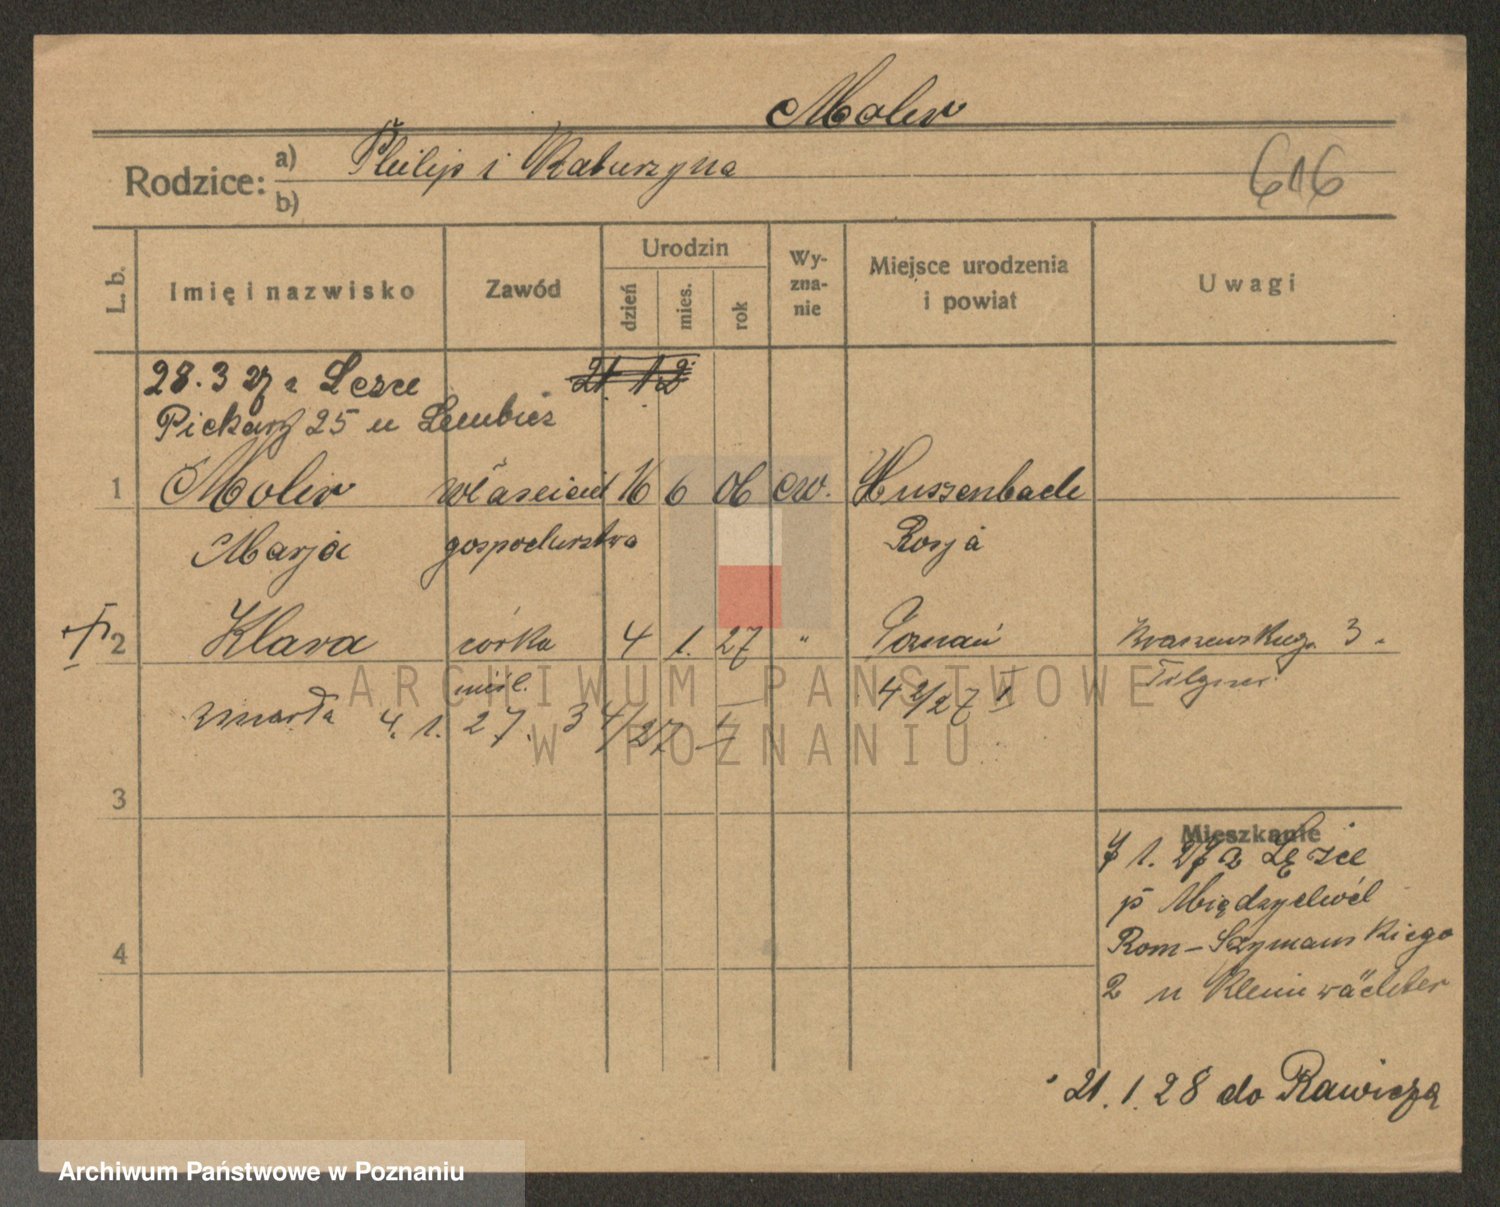 Moler
Rodzice: a) Philip i Katarzyna
b)
616
L. b.
Imię i nazwisko
Zawód
Urodzin
dzień
mies.
rok
Wy-
zna-
nie
Miejsce urodzenia
i powiat
Uwagi
28.3 27 z Leszce
21. 1. 2
Piekary 25 u
1 Moler właściciel 16 6 06 ew. Hussenbach
Marja gospodarstwa Rosja
2 Klara córka 4 1. 27 " Poznań Kraszewskiego 3
nieśl.
4 2/27 I
zmarła 4. 1. 27. 3 4/27 I
3
4
Mieszkanie
7 1. 27 z
p Międzychód
Rom-Szymańskiego
2 u Kleinwächter
21. 1. 28 do Rawicza
ARCHIWUM PAŃSTWOWE
W POZNANIU
Archiwum Państwowe w Poznaniu